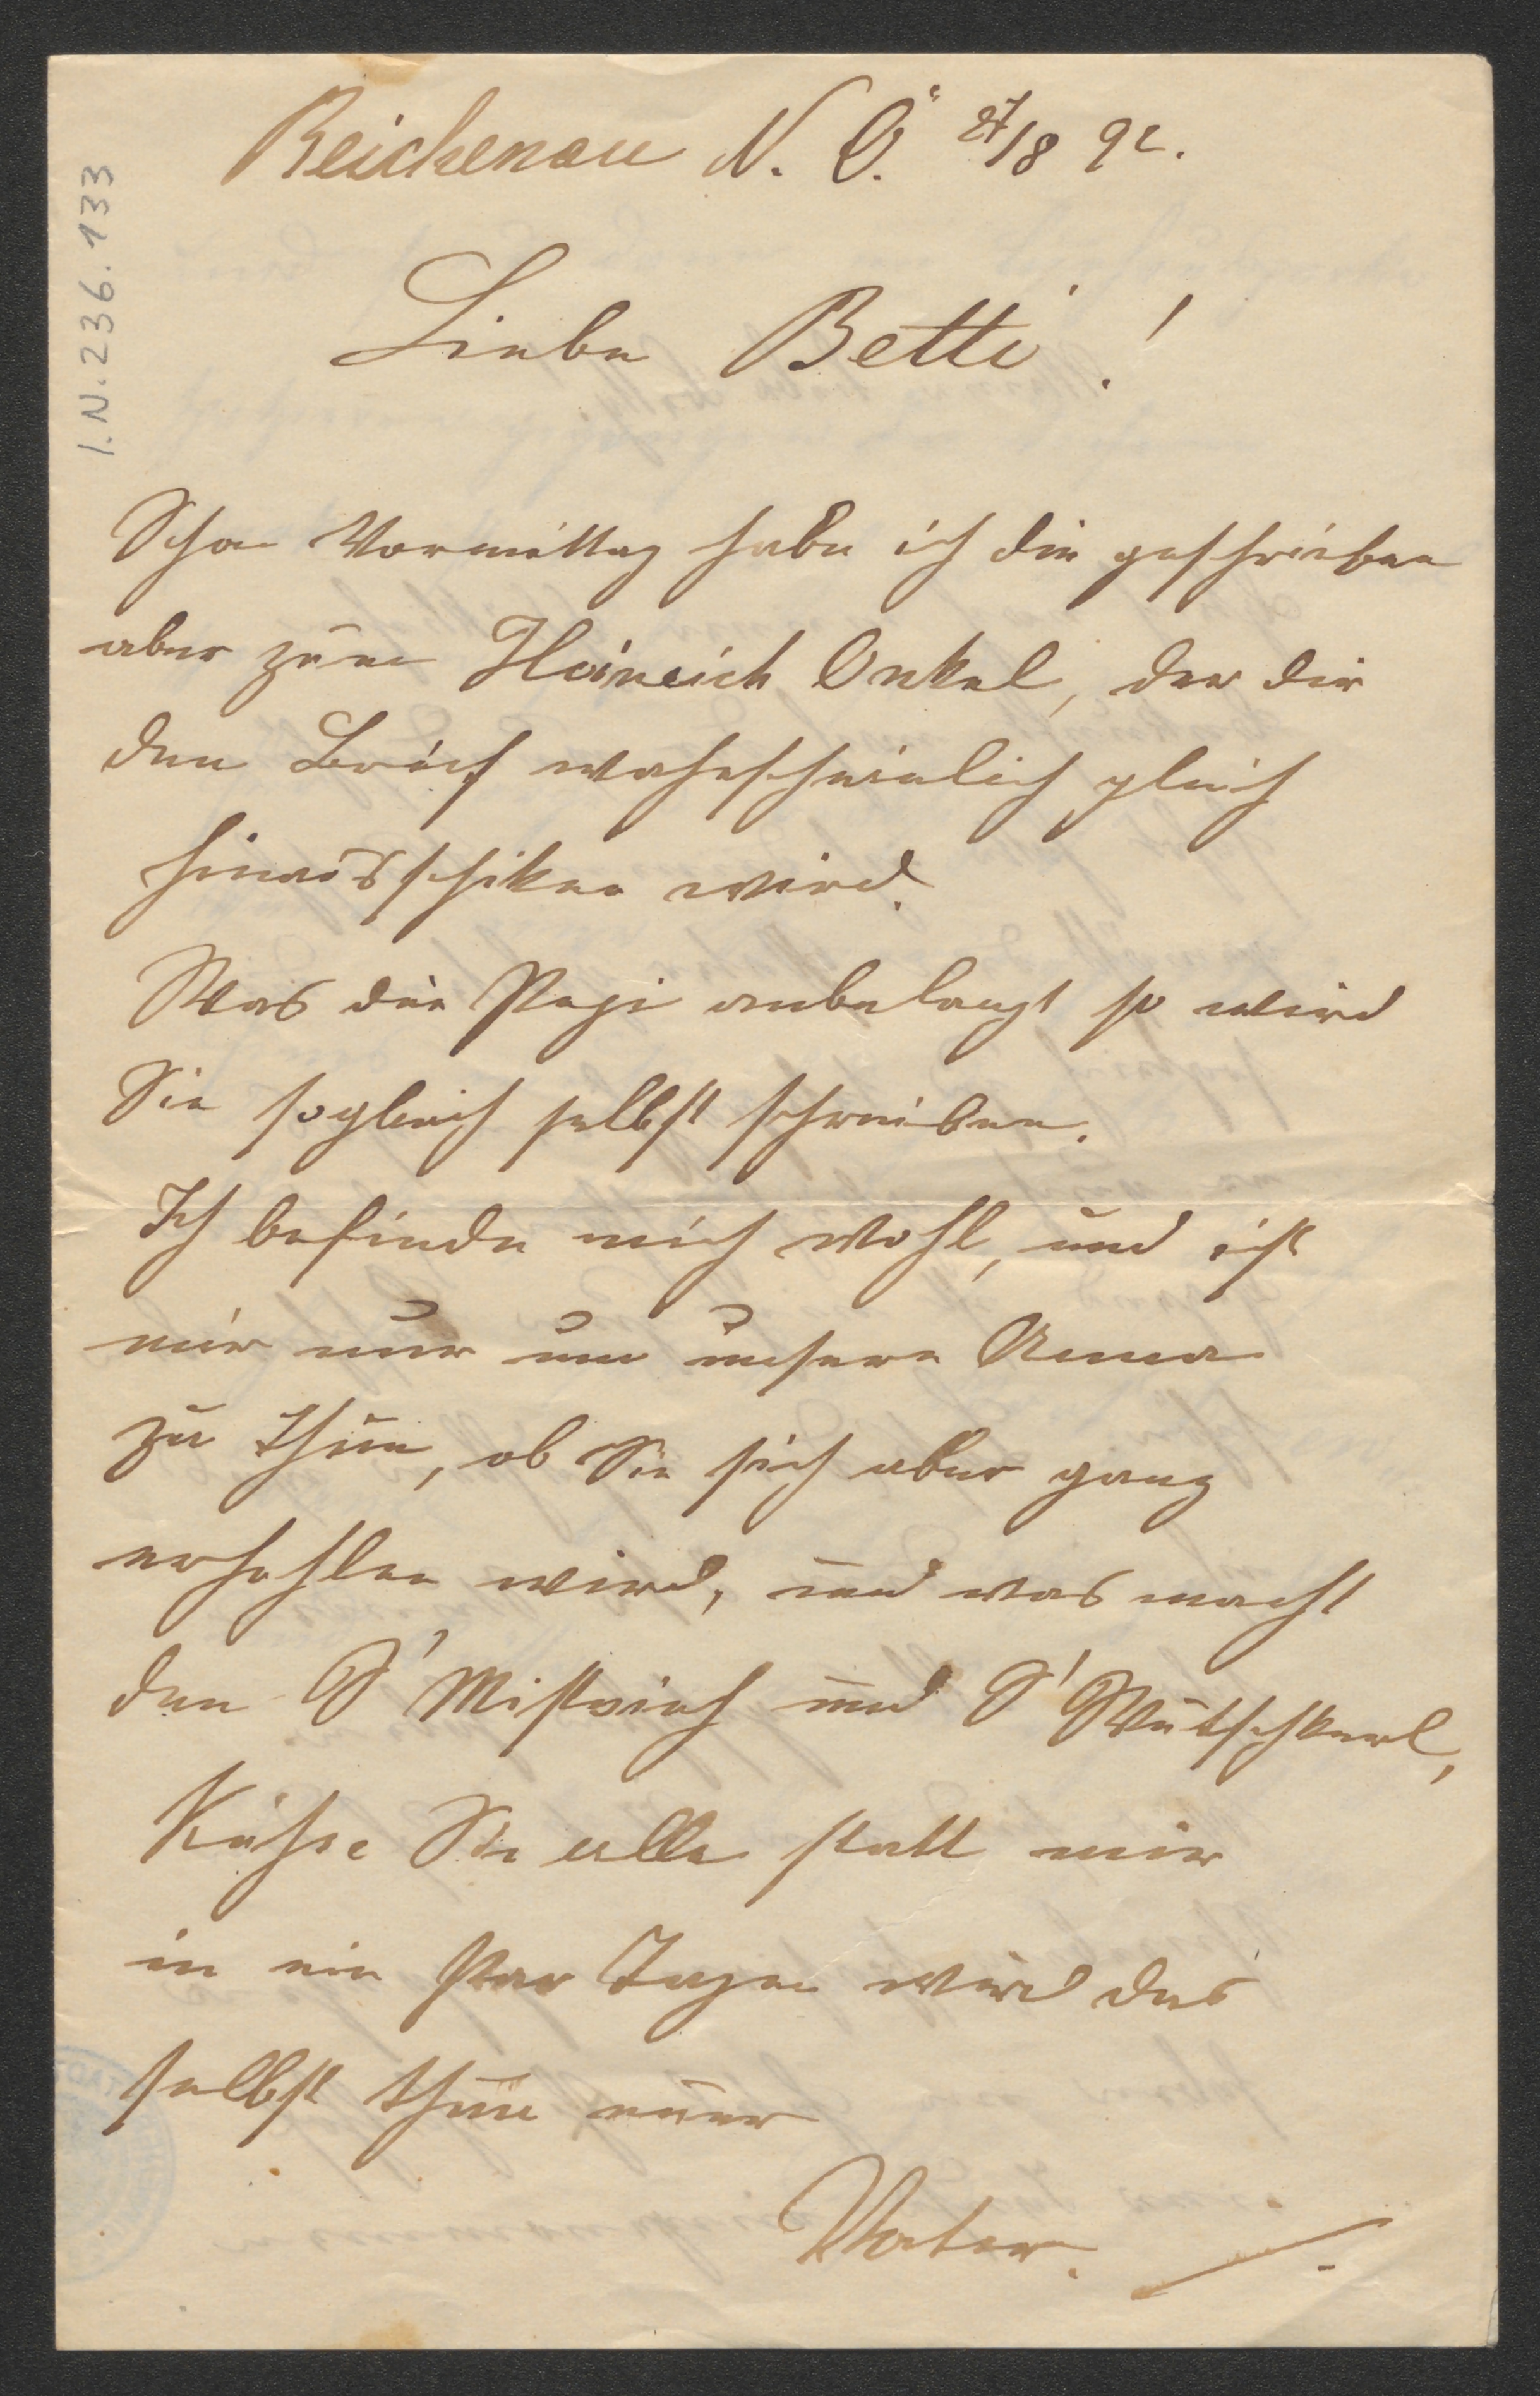 Reichenau N. Ö. 27/8 92.
I.N. 236.133
Liebe Betti!
Schon Vormittag habe ich dir geschrieben
aber zum Heinrich Onkel, der dir
den Brief wahrscheinlich gleich
hinausschiken wird.
Was die Pepi anbelangt so wird
Sie sogleich selbst schreiben.
Ich befinde mich wohl, und ist
mir nur um unsere Anna
zu thun, ob Sie sich aber ganz
erhohlen wird, und was macht
den S' Mistvieh und S' Wutschkerl,
Küsse Sie alle statt mir
in ein Par Tagen wird das
selbst thun euer
Vater.